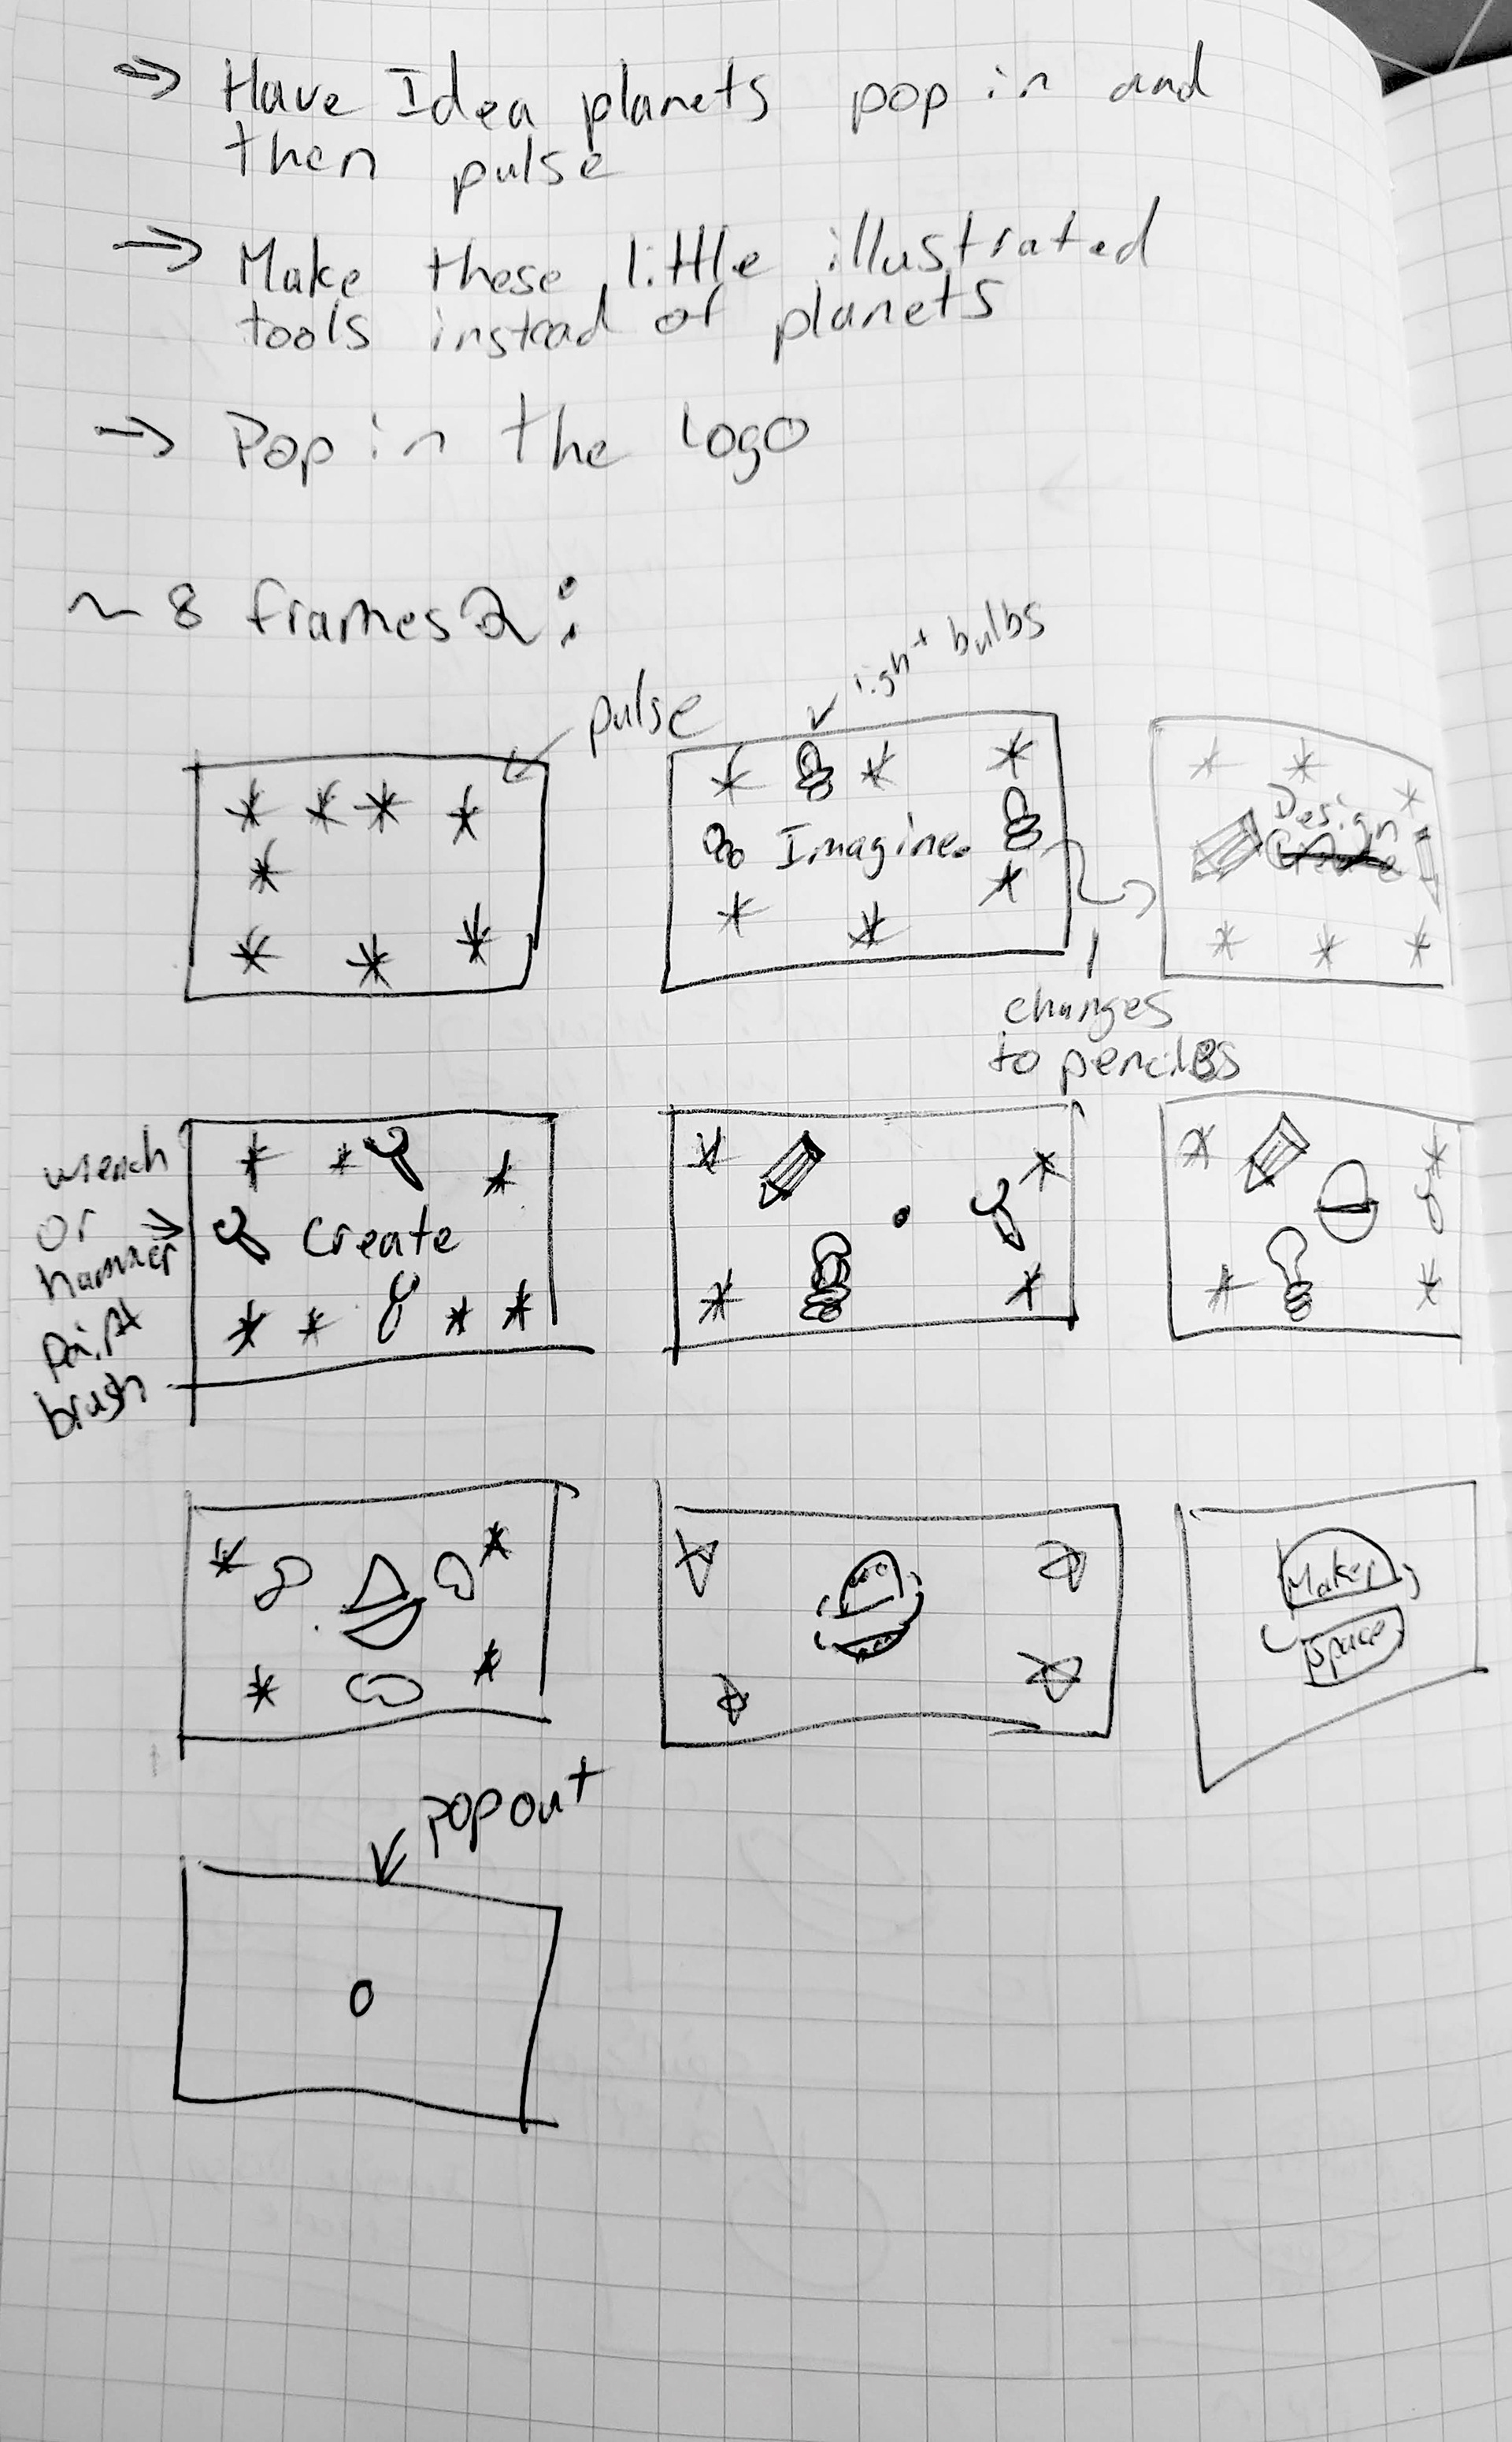 ⇒ Have Idea planets pop in and
then pulse
→ Make these little illustrated
tools instead of planets
→ Pop in the logo
~ 8 frames 2:
pulse
light bulbs
Imagine.
Design
Create
changes
to pencils
wrench
or
hammer
paint
brush
Create
Maker
Space
pop out